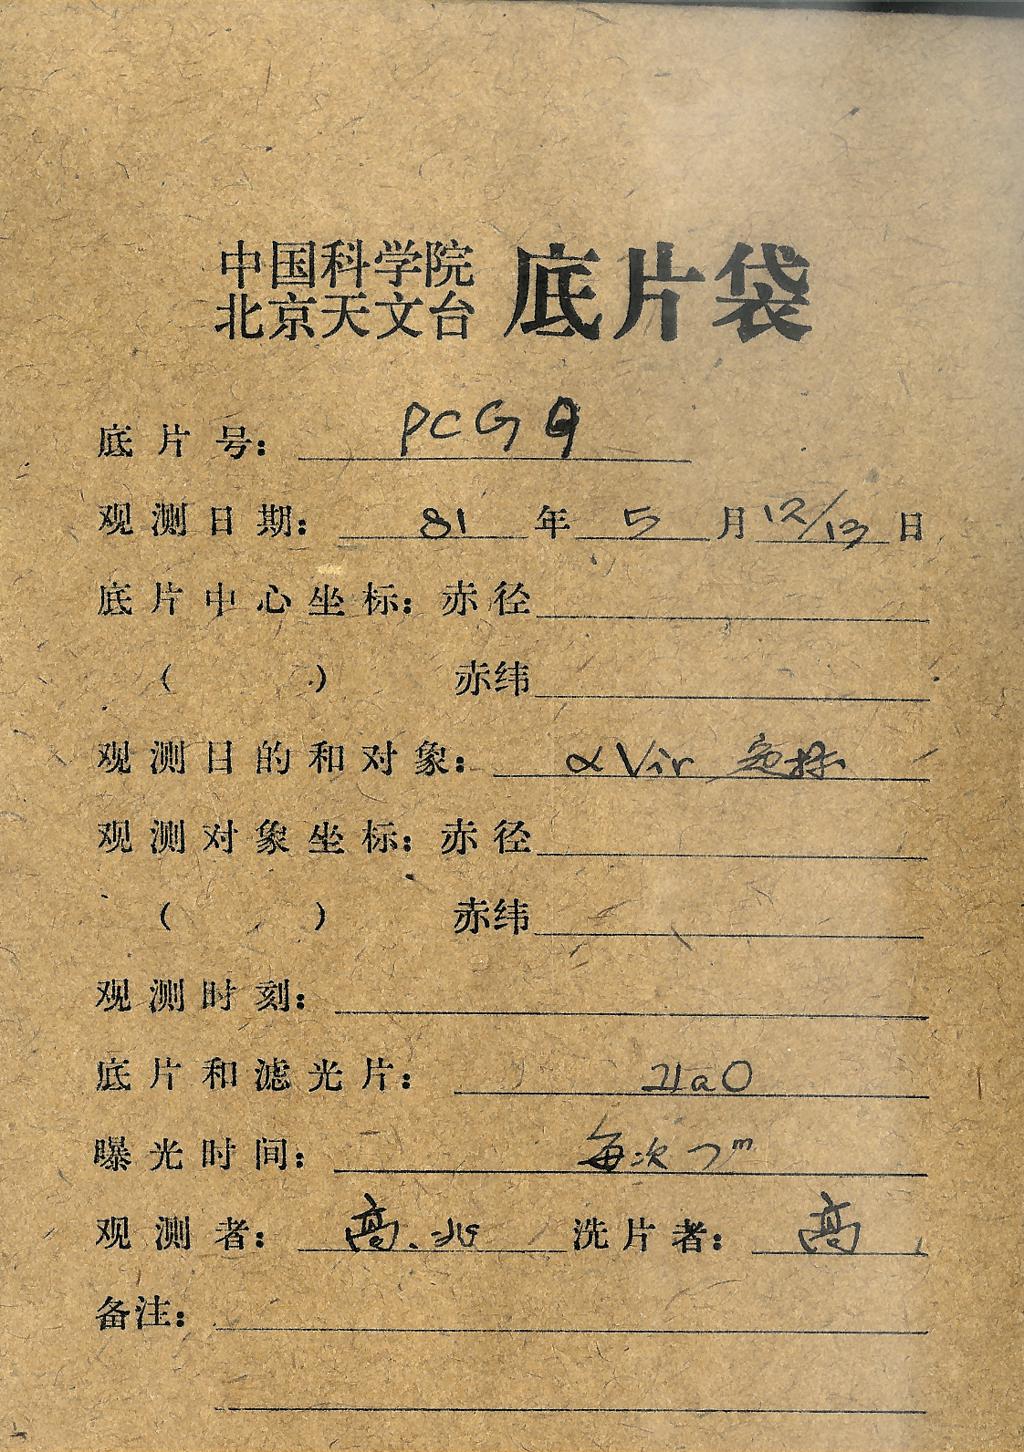 中国科学院
北京天文台 底片袋
底片号： PCG 9
观测日期： 81 年 5 月 12/13 日
底片中心坐标：赤径
（ ） 赤纬
观测目的和对象： α Vir 定标
观测对象坐标：赤径
（ ） 赤纬
观测时刻：
底片和滤光片： IIaO
曝光时间： 每次 7ᵐ
观测者： 高、 洗片者： 高
备注：